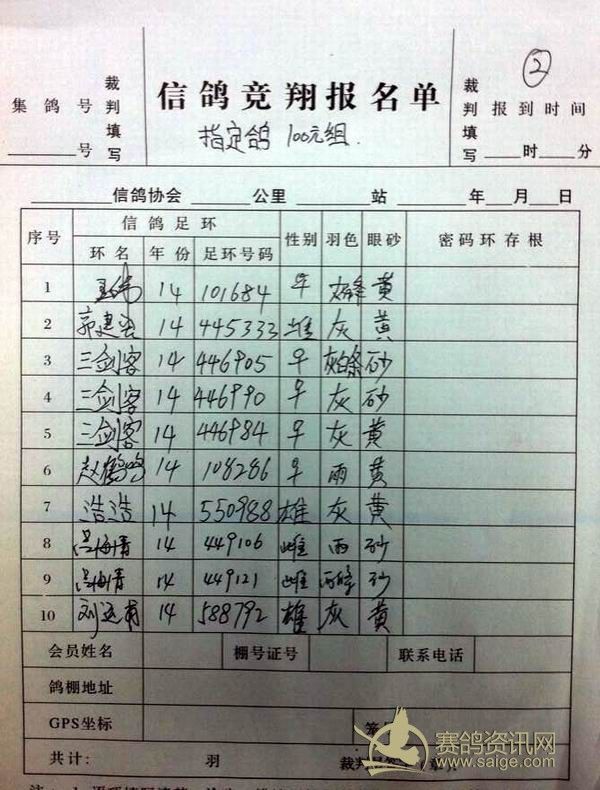 集鸽号
____号
裁判填写
信鸽竞翔报名单
指定鸽 100元组.
裁判填写
②
报到时间
____时____分
____信鸽协会____公里____站____年__月__日
序号 信鸽足环 性别 羽色 眼砂 密码环存根
环名 年份 足环号码
1 14 101684 黄
2 14 445333 雌 灰 黄
3 三剑客 14 446905 砂
4 三剑客 14 446990 灰 砂
5 三剑客 14 446984 灰 黄
6 赵鹤鸣 14 108286 雨 黄
7 浩浩 14 550988 雄 灰 黄
8 14 449106 雌 雨 砂
9 14 449121 雌 砂
10 14 588792 雄 灰 黄
会员姓名 棚号证号 联系电话
鸽棚地址
GPS坐标
共计: 羽
赛鸽资讯网
www.saige.com